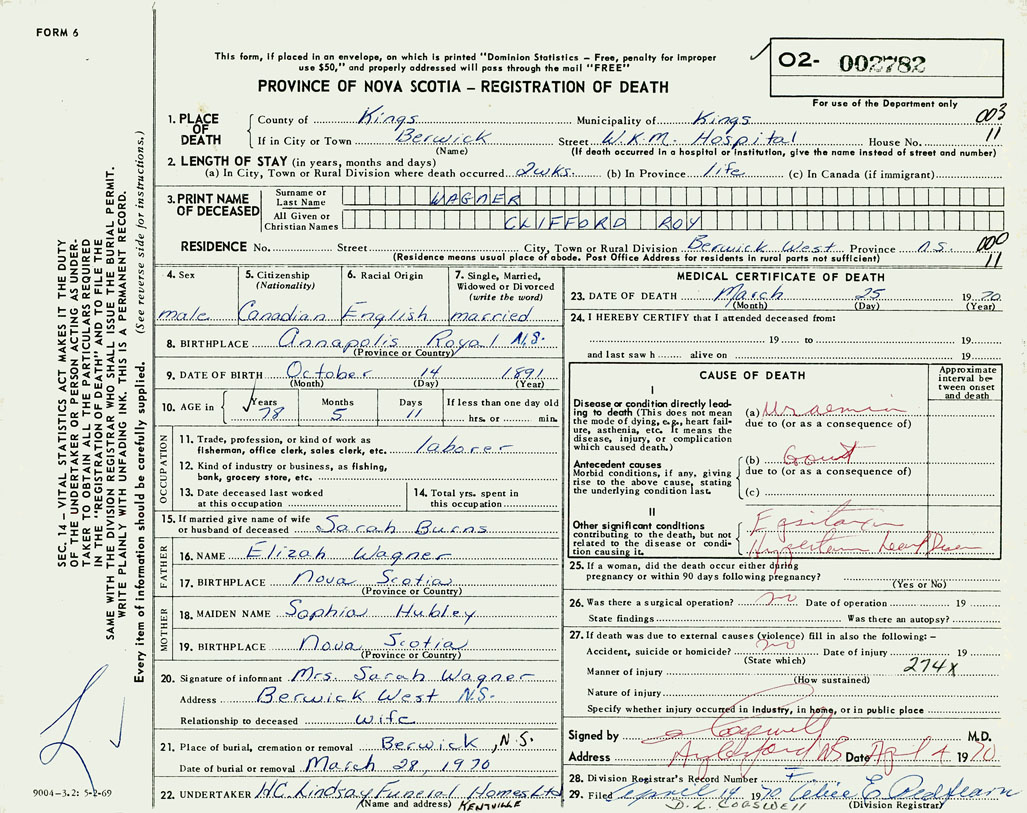 FORM 6
This form, if placed in an envelope, on which is printed "Dominion Statistics – Free, penalty for improper
use $50," and properly addressed will pass through the mail "FREE"
O2- 002782
For use of the Department only
PROVINCE OF NOVA SCOTIA – REGISTRATION OF DEATH
003
11
1. PLACE OF DEATH
County of Kings Municipality of Kings
If in City or Town Berwick Street W.K.M. Hospital House No.
(Name) (If death occurred in a hospital or institution, give the name instead of street and number)
2. LENGTH OF STAY (in years, months and days)
(a) In City, Town or Rural Division where death occurred 2wks. (b) In Province life (c) In Canada (if immigrant)
3. PRINT NAME OF DECEASED
Surname or Last Name WAGNER
All Given or Christian Names CLIFFORD ROY
RESIDENCE No. Street City, Town or Rural Division Berwick West Province N.S.
(Residence means usual place of abode. Post Office Address for residents in rural parts not sufficient)
000
11
4. Sex
male
5. Citizenship
(Nationality)
Canadian
6. Racial Origin
English
7. Single, Married,
Widowed or Divorced
(write the word)
married
8. BIRTHPLACE Annapolis Royal N.S.
(Province or Country)
9. DATE OF BIRTH October 14 1891
(Month) (Day) (Year)
10. AGE in Years Months Days If less than one day old
78 5 11 hrs. or min.
OCCUPATION
11. Trade, profession, or kind of work as
fisherman, office clerk, sales clerk, etc. laborer
12. Kind of industry or business, as fishing,
bank, grocery store, etc.
13. Date deceased last worked
at this occupation
14. Total yrs. spent in
this occupation
15. If married give name of wife
or husband of deceased Sarah Burns
FATHER
16. NAME Elizah Wagner
17. BIRTHPLACE Nova Scotia
(Province or Country)
MOTHER
18. MAIDEN NAME Sophia Hubley
19. BIRTHPLACE Nova Scotia
(Province or Country)
20. Signature of informant Mrs. Sarah Wagner
Address Berwick West N.S.
Relationship to deceased wife
21. Place of burial, cremation or removal Berwick, N.S.
Date of burial or removal March 28, 1970
22. UNDERTAKER H.C. Lindsay Funeral Homes Ltd
(Name and address) KENTVILLE
MEDICAL CERTIFICATE OF DEATH
23. DATE OF DEATH March 25 1970
(Month) (Day) (Year)
24. I HEREBY CERTIFY that I attended deceased from:
19 to 19
and last saw h alive on 19
CAUSE OF DEATH
Approximate
interval be-
tween onset
and death
I
Disease or condition directly lead-
ing to death (This does not mean
the mode of dying, e.g., heart fail-
ure, asthenia, etc. It means the
disease, injury, or complication
which caused death.)
(a) Uraemia
due to (or as a consequence of)
Antecedent causes
Morbid conditions, if any, giving
rise to the above cause, stating
the underlying condition last.
(b) Gout
due to (or as a consequence of)
(c)
II
Other significant conditions
contributing to the death, but not
related to the disease or condi-
tion causing it.
25. If a woman, did the death occur either during
pregnancy or within 90 days following pregnancy?
(Yes or No)
26. Was there a surgical operation? no Date of operation 19
State findings Was there an autopsy?
27. If death was due to external causes (violence) fill in also the following: –
Accident, suicide or homicide? no Date of injury 19
(State which)
274X
Manner of injury
(How sustained)
Nature of injury
Specify whether injury occurred in industry, in home, or in public place
Signed by M.D.
Address Aylesford NS Date Apl 4 1970
28. Division Registrar's Record Number
29. Filed April 14 1970 E. Redfearn
D. L. COGSWELL (Division Registrar)
SEC. 14 – VITAL STATISTICS ACT MAKES IT THE DUTY
OF THE UNDERTAKER OR PERSON ACTING AS UNDER-
TAKER TO OBTAIN ALL THE PARTICULARS REQUIRED
IN THE "REGISTRATION OF DEATH" AND TO FILE THE
SAME WITH THE DIVISION REGISTRAR WHO SHALL ISSUE THE BURIAL PERMIT.
WRITE PLAINLY WITH UNFADING INK. THIS IS A PERMANENT RECORD.
Every item of information should be carefully supplied. (See reverse side for instructions.)
9004-3.2: 5-2-69